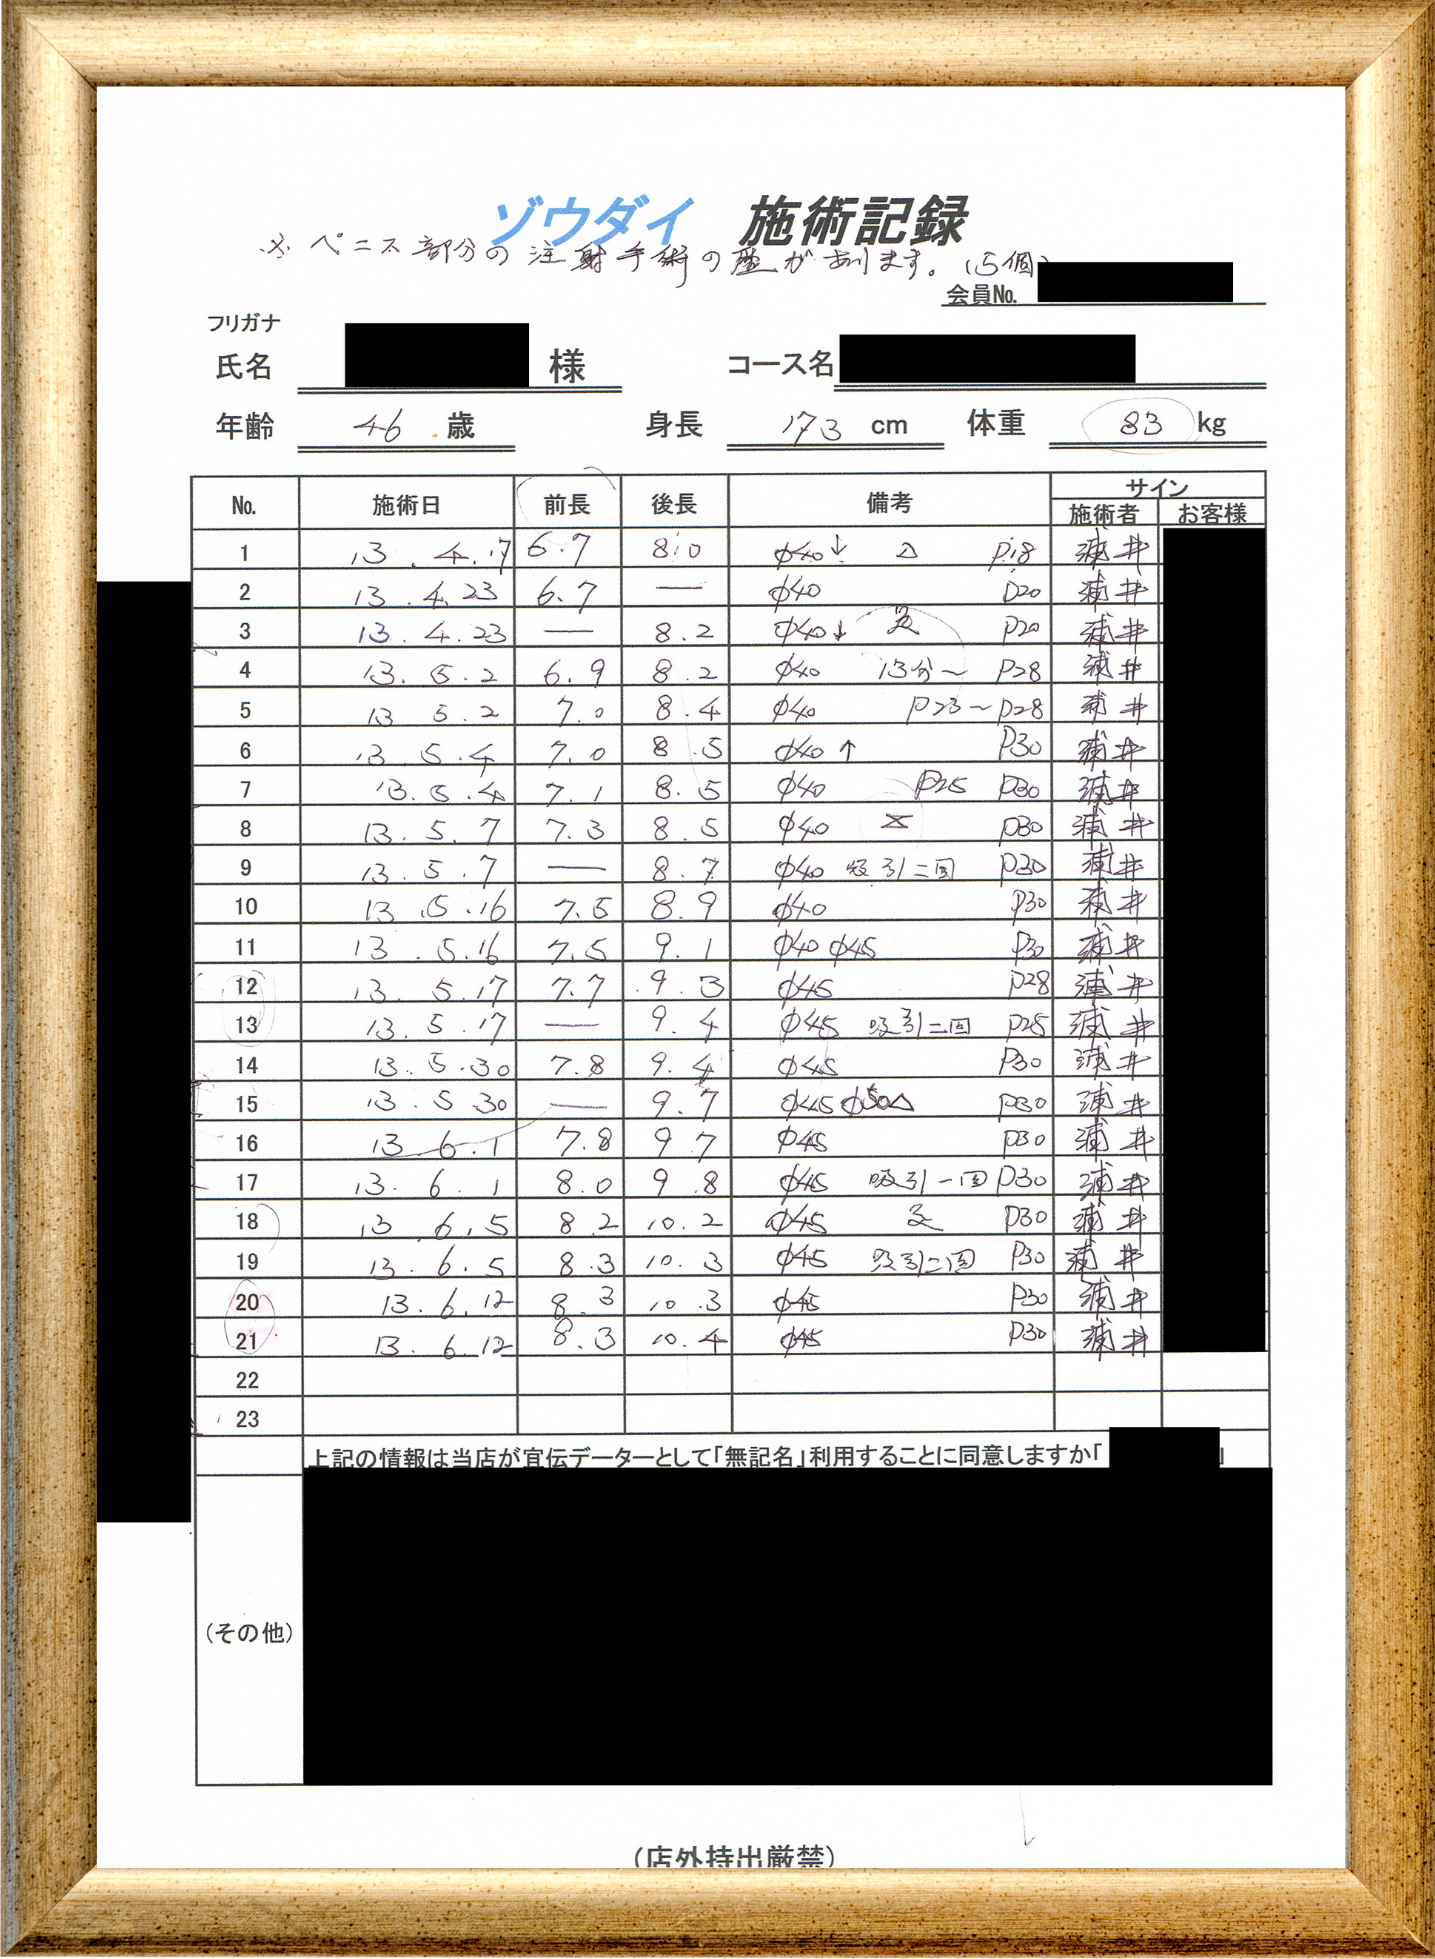 ゾウダイ 施術記録
※ ペニス部分の注射手術の歴があります。(5個)
会員No.
フリガナ
氏名 様 コース名
年齢 46 歳 身長 173 cm 体重 83 kg
No. 施術日 前長 後長 備考 サイン
施術者 お客様
1 13.4.17 6.7 8.0 φ40↓ △ P18 浦井
2 13.4.23 6.7 — φ40 P20 浦井
3 13.4.23 — 8.2 φ40↓ P20 浦井
4 13.5.2 6.9 8.2 φ40 13分~ P28 浦井
5 13 5.2 7.0 8.4 φ40 P23~P28 浦井
6 13.5.4 7.0 8.5 φ40↑ P30 浦井
7 13.5.4 7.1 8.5 φ40 P25 P30 浦井
8 13.5.7 7.3 8.5 φ40 P30 浦井
9 13.5.7 — 8.7 φ40 吸引二回 P30 浦井
10 13.5.16 7.5 8.9 φ40 P30 浦井
11 13.5.16 7.5 9.1 φ40 φ45 P30 浦井
12 13.5.17 7.7 9.3 φ45 P28 浦井
13 13.5.17 — 9.4 φ45 吸引二回 P25 浦井
14 13.5.30 7.8 9.4 φ45 P30 浦井
15 13.5 30 — 9.7 φ45 φ50△ P30 浦井
16 13.6.1 7.8 9.7 φ45 P30 浦井
17 13.6.1 8.0 9.8 φ45 吸引一回 P30 浦井
18 13.6.5 8.2 10.2 φ45 P30 浦井
19 13.6.5 8.3 10.3 φ45 吸引二回 P30 浦井
20 13.6.12 8.3 10.3 φ45 P30 浦井
21 13.6.12 8.3 10.4 φ45 P30 浦井
22
23
上記の情報は当店が宣伝データーとして「無記名」利用することに同意しますか「 」
(その他)
(店外持出厳禁)